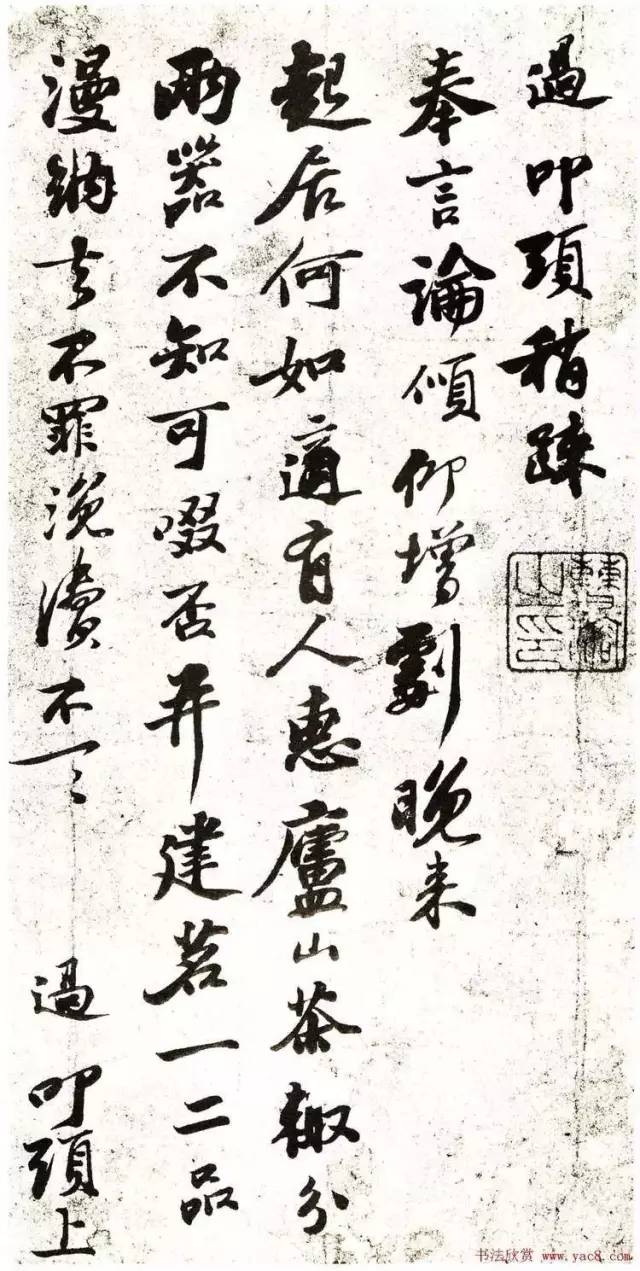 過叩頭稍踈
奉言論傾仰增劇晚来
起居何如適有人惠廬山茶輙分
兩器不知可啜否并建茗一二品
漫納去不罪浼瀆不一一 過叩頭上
书法欣赏 www.yac8.com